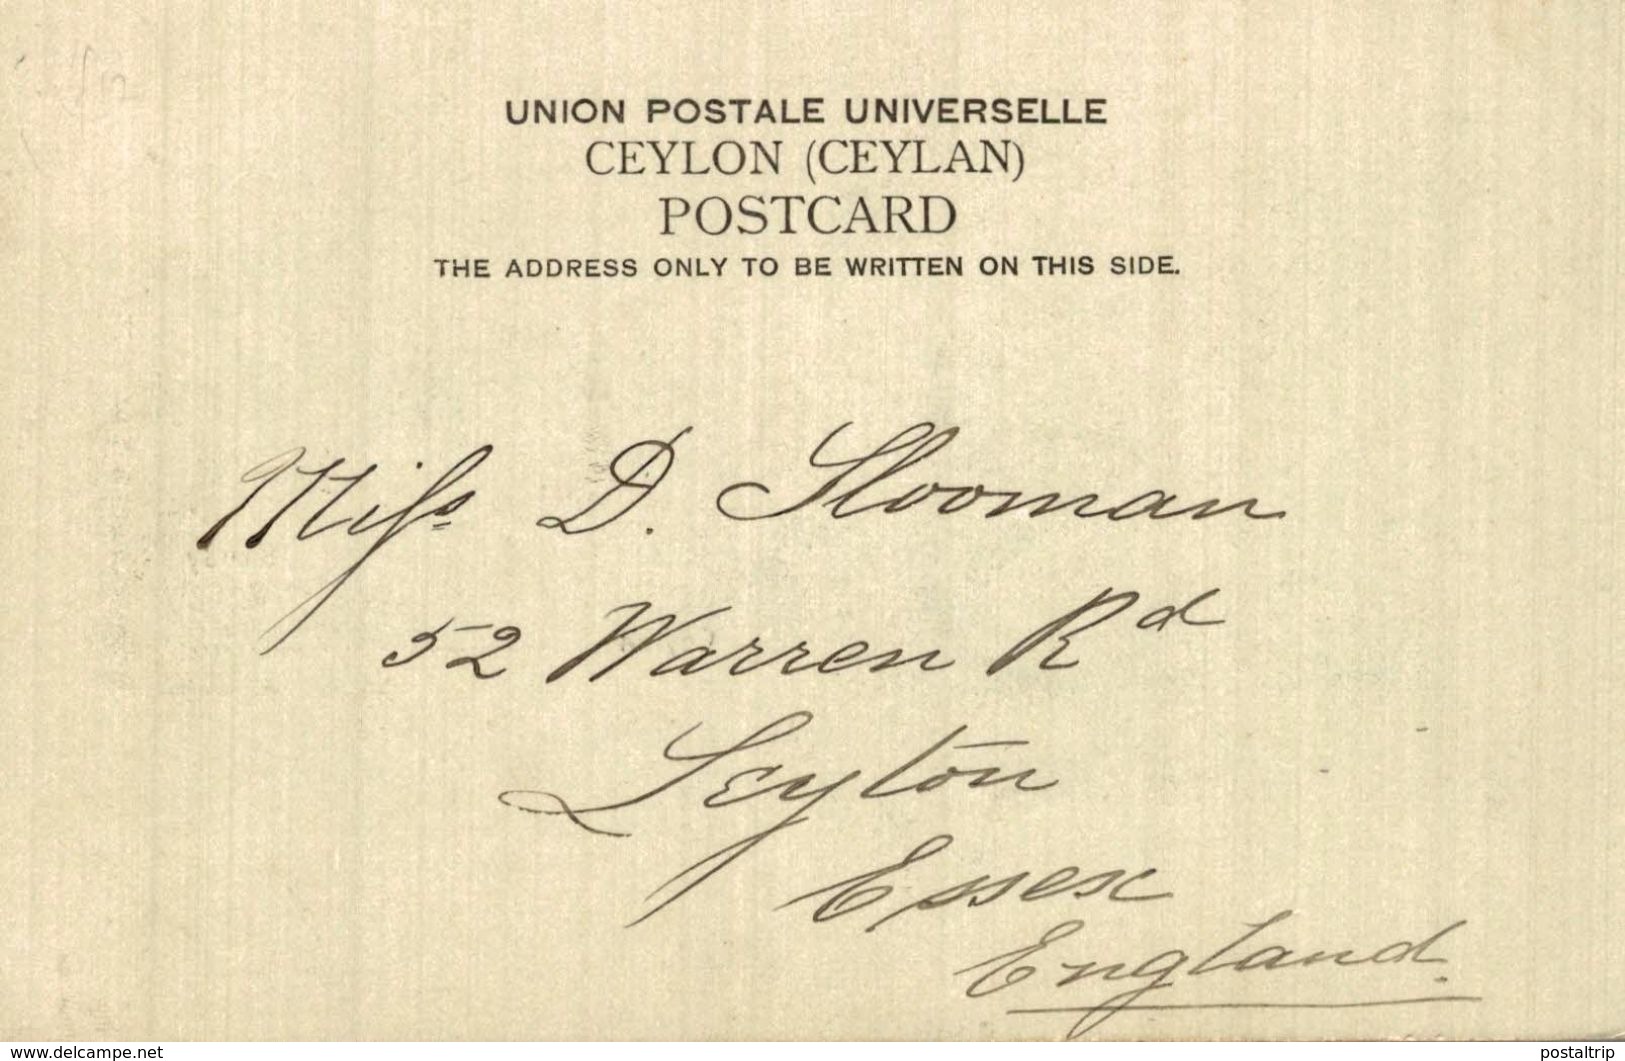 UNION POSTALE UNIVERSELLE
CEYLON (CEYLAN)
POSTCARD
THE ADDRESS ONLY TO BE WRITTEN ON THIS SIDE.
Miss D. Slooman
52 Warren Rd
Leyton
Essex
England.
www.delcampe.net
postaltrip